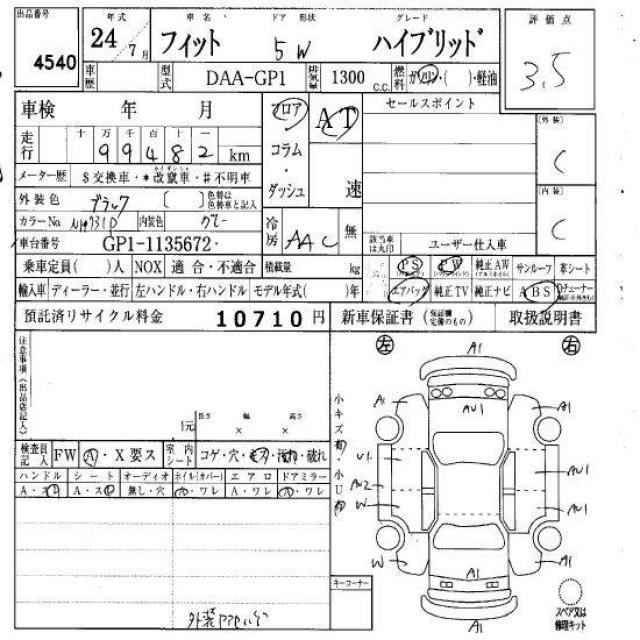 出品番号 4540
年式 24 / 7月
車名 フィット
ドア 形状 5W
グレード ハイブリッド
評価点 3.5
車歴
型式 DAA-GP1
排気量 1300 C.C.
燃料 ガソリン・( )・軽油
車検 年 月
フロア AT
セールスポイント
走行 十 万 千 百 十 一
99482 km
コラム・ダッシュ 速
(外装) C
メーター歴 $交換車・*改竄車・#不明車
外装色 ブラック 〔 〕色替は色替車と記入
(内装) C
カラーNo 内装色 グレー
冷房 AAC 無
車台番号 GP1-1135672
該当車は丸印 ユーザー仕入車
乗車定員( )人 NOX 適合・不適合 積載量 kg
PS PW 純正AW サンルーフ 革シート
輸入車 ディーラー・並行 左ハンドル・右ハンドル モデル年式( )年
エアバッグ 純正TV 純正ナビ ABS
預託済リサイクル料金 10710 円
新車保証書 (保証欄完備のもの) 取扱説明書
注意事項(出品店記入)
左 右
A1
A1 AU1 A1
小キズ有 小U有
U1 AU1
AU2
W AU1
W A1
A1
A1
長さ 幅 高さ
× ×
検査員記入 FW A・X要ス 室内シート コゲ・穴・キズ・汚れ・破れ
ハンドル シート オーディオ ホイル(カバー) エアロ ドアミラー
A・ス A・ス 無し・穴 A・ワレ A・ワレ A・ワレ
キーコーナー
スペア又は修理キット